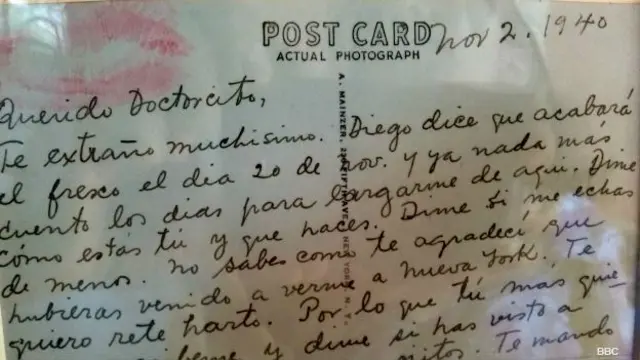 POST CARD
ACTUAL PHOTOGRAPH
Nov 2. 1940
Querido Doctorcito,
Te extraño muchisimo. Diego dice que acabará
el fresco el dia 20 de Nov. y ya nada más
cuento los dias para largarme de aqui. Dime
cómo estás tú y que haces. Dime si me echas
de menos. No sabes como te agradecí que
hubieras venido a verme a Nueva York. Te
quiero rete harto. Por lo que tú más quie-
y dime si has visto a
Te mando
A. MAINZER, FIFTH AVE. NEW YORK, N. Y.
BBC